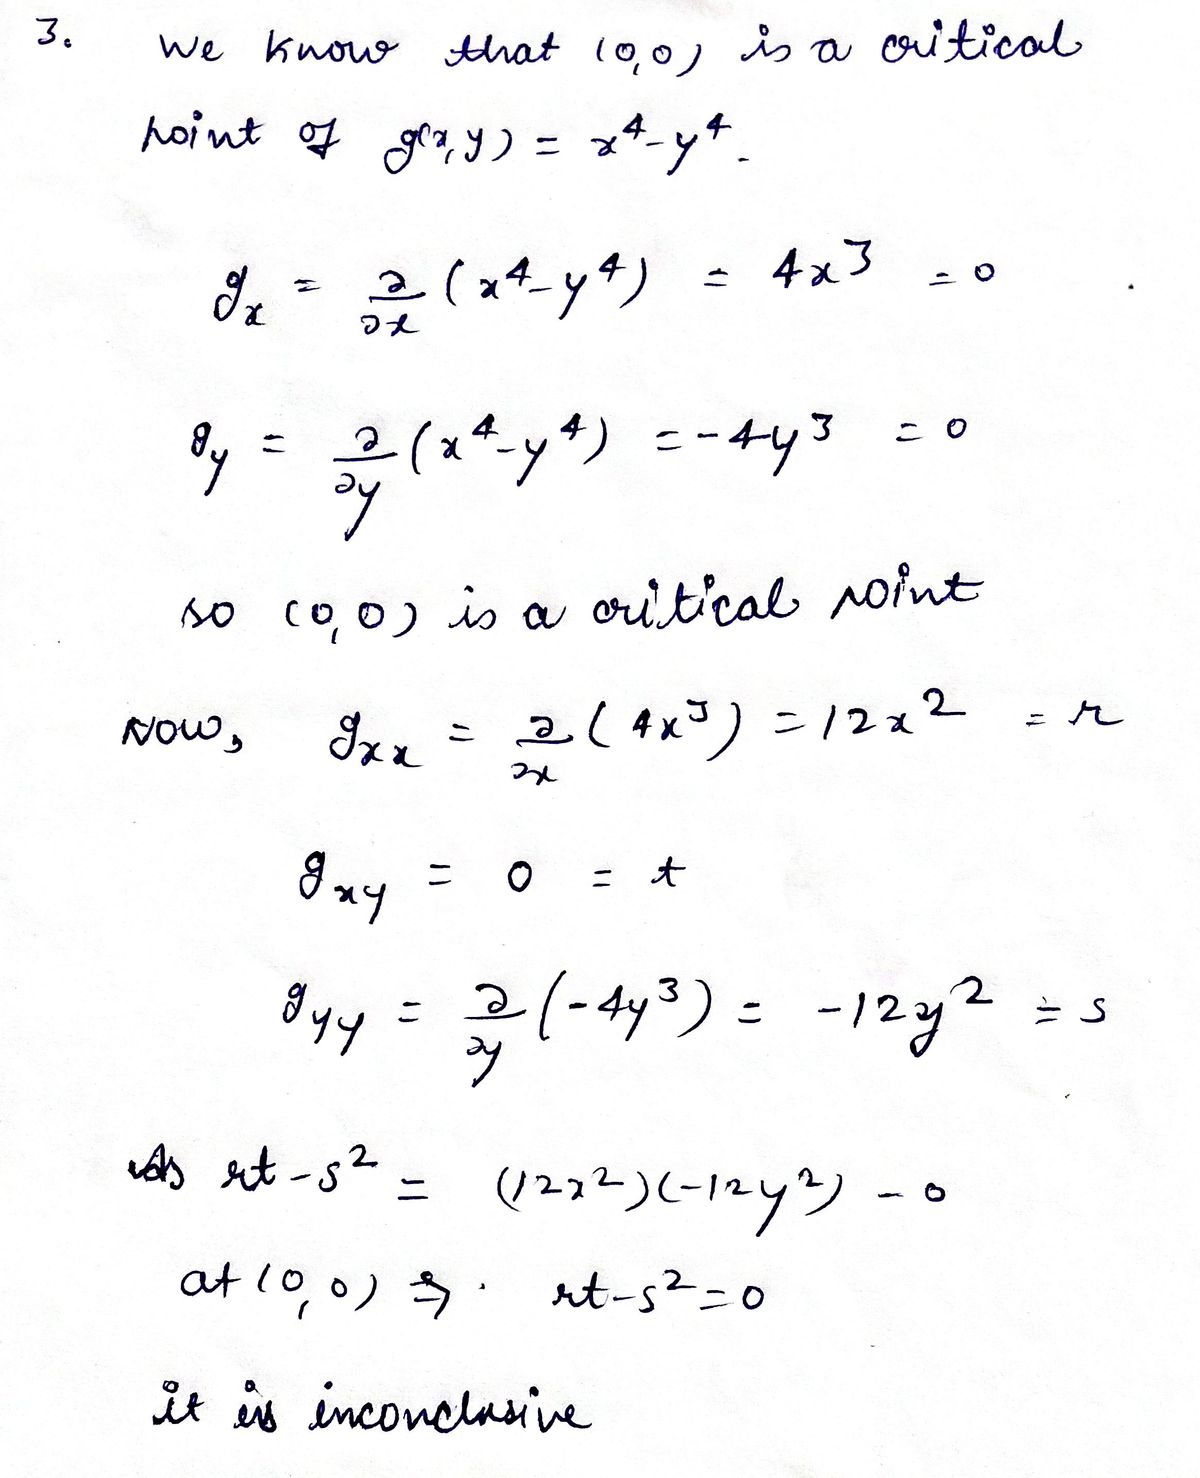 3. We know that (0,0) is a critical
point of g(x,y) = x⁴-y⁴.
gₓ = ∂/∂x (x⁴-y⁴) = 4x³ = 0
g_y = ∂/∂y (x⁴-y⁴) = -4y³ = 0
so (0,0) is a critical point
Now, gₓₓ = ∂/∂x (4x³) = 12x² = r
g_xy = 0 = t
g_yy = ∂/∂y (-4y³) = -12y² = s
As rt-s² = (12x²)(-12y²) - 0
at (0,0) ⇒ rt-s²=0
it is inconclusive